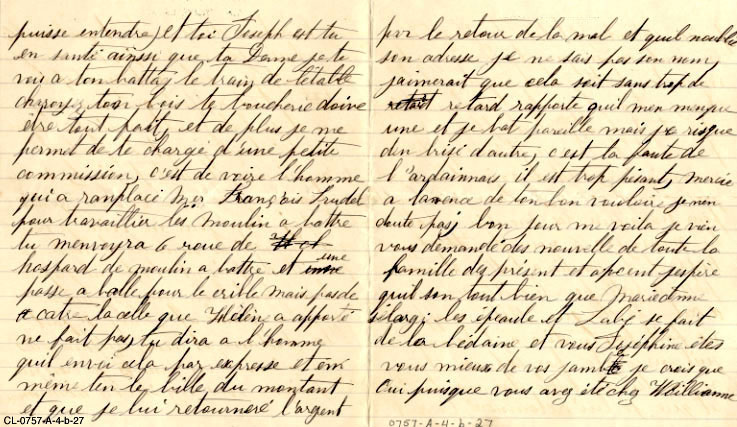 puisse entendre, et toi Joseph est tu
en santi ainssi que ta Dame je te
voi a ton batta, le train de létable
charoyé ton bois ta boucherie doive
être tout fait, et de plus je me
permet de te chargé d'une petite
commission, c'est de voire l'homme
qui a ranplacé Mgr François Trudel
pour travaillier les moulin a battre
tu menvoyra 6 roue de
hospard de moulin a battre et une
passe a balle pour le crible mais pas de
catre la celle que Hélène a apporté
ne fait pas, tu dira a l'homme
quil envoi cela par expresse et em
même ten le bille du montant
et que je lui retourneré l'argent
par le retour de la mal et quel
son adresse je ne sais pas son nom,
jaimerait que cela soit sans trop de
retard rapporte quil men menque
une et je bat pareille mais je risque
den brisé d'autre, c'est la faute de
l'ardainnas il est trop pesant, mercie
a lavence de ton bon vouloir je nen
doute pas, bon pour me voila je vien
vous demandé des nouvelle de toute la
famille des present et apcent jespire
quil son tout bien que Marieanne
sélargi les épaule et Labé se fait
de la bédaine et vous Joséphine êtes
vous mieux de vos jambe je crois que
Oui puisque vous avez été chez Williamme
CL-0757-A-4-b-27
0757-A-4-b-27